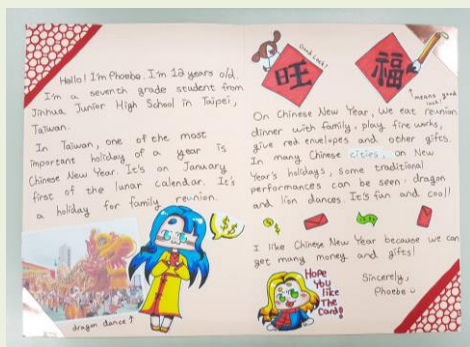 Hello! I'm Phoebe. I'm 12 years old.
I'm a seventh grade student from
Jinhua Junior High School in Taipei,
Taiwan.
In Taiwan, one of the most
important holiday of a year is
Chinese New Year. It's on January
first of the lunar calendar. It's
a holiday for family reunion.
dragon dance↑
Good Luck!
旺
福
↑means good
luck!
On Chinese New Year, we eat reunion
dinner with family, play fire works,
give red envelopes and other gifts.
In many Chinese cities, on New
Year's holidays, some traditional
performances can be seen: dragon
and lion dances. It's fun and cool!
I like Chinese New Year because we can
get many money and gifts!
Sincerely,
Phoebe
Hope
You
like
The
Card!